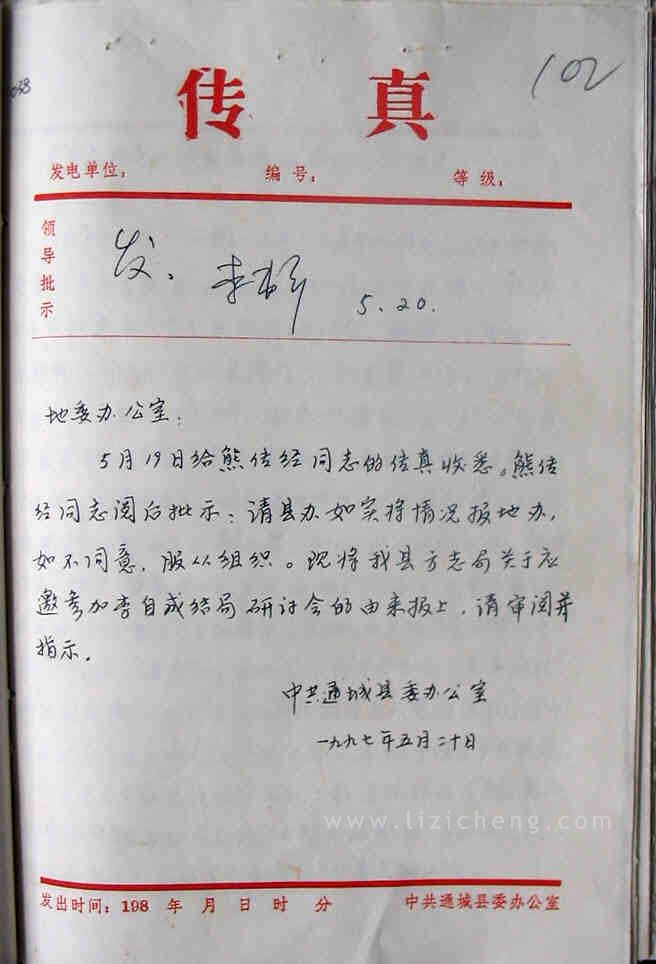 038
102
传 真
发电单位： 编 号： 等 级：
领导批示
发。
5.20.
地委办公室：
5月19日给熊传经同志的传真收悉。熊传
经同志阅后批示：请县办如实将情况报地办，
如不同意，服从组织。现将我县方志局关于应
邀参加李自成结局研讨会的由来报上，请审阅并
指示。
中共通城县委办公室
一九九七年五月二十日
www.lizicheng.com
发出时间：198 年 月 日 时 分 中共通城县委办公室